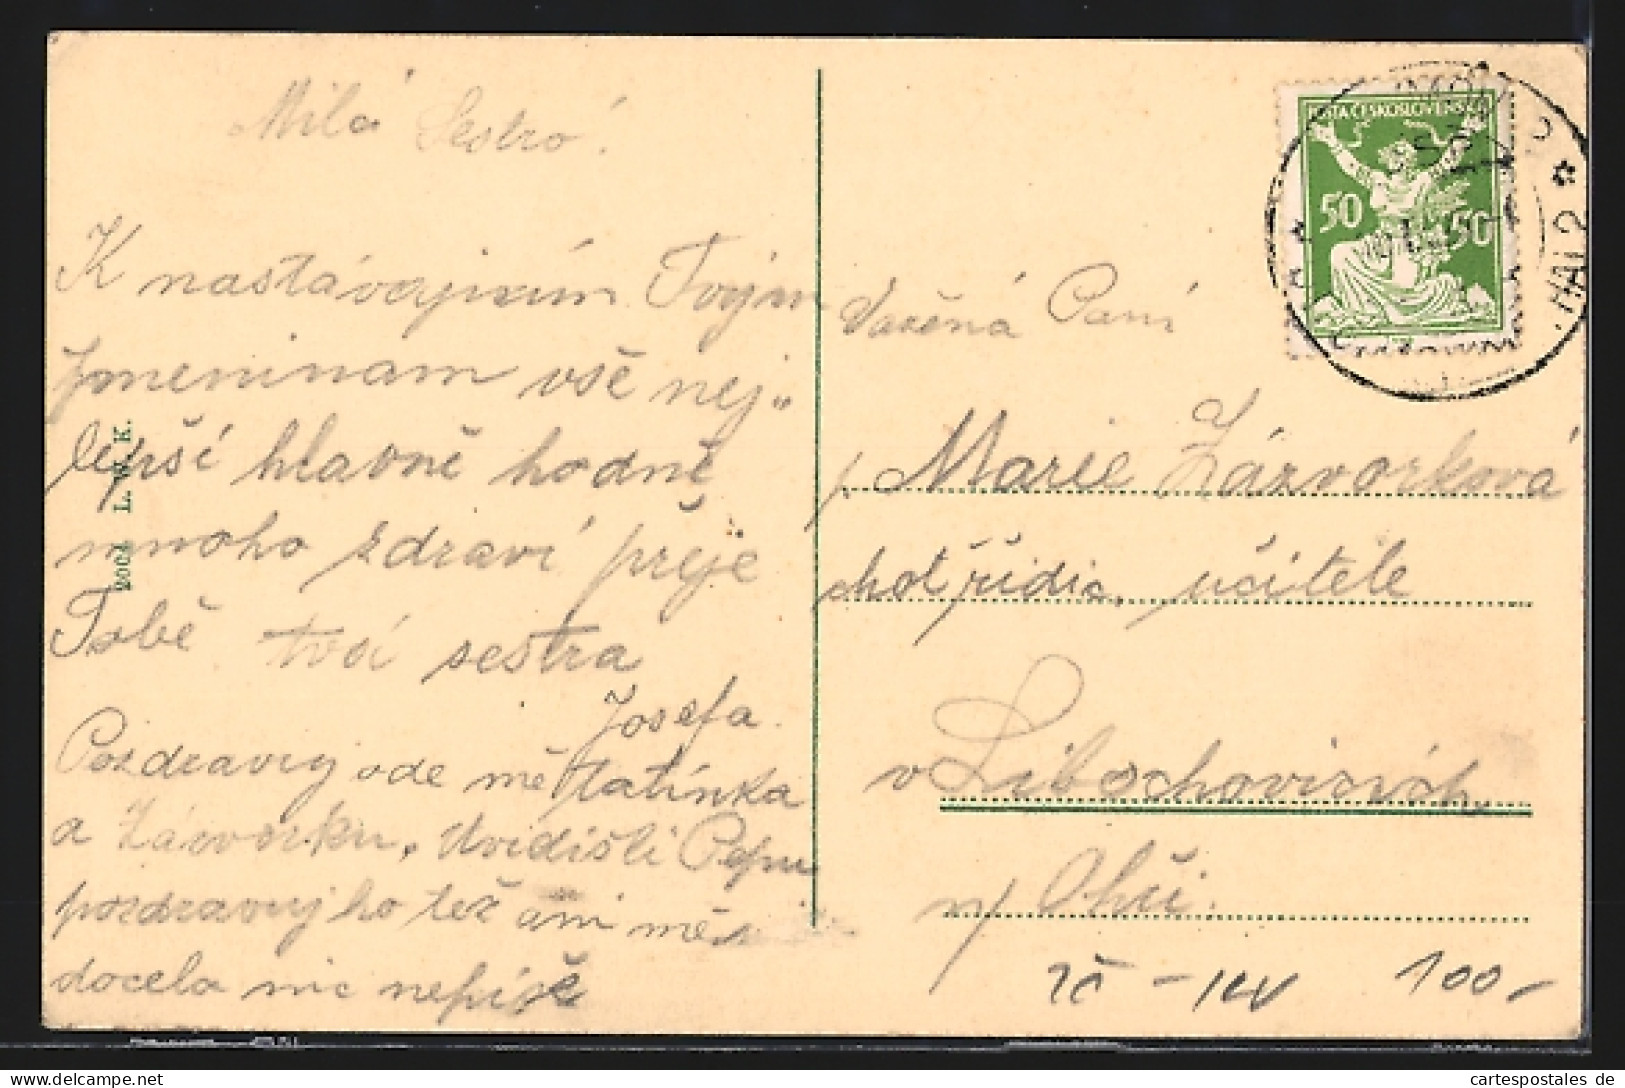 Milá Sestro!
K nastávajícím Tvým
jmeninam vše nej„
lepší hlavně hodně
mnoho zdraví přeje
Tobě tvá sestra
Josefa.
Pozdravuj ode mě tatínka
a Závorku. Uvidíšli Pepu
pozdravuj ho též ani mě
docela nic nepíše
2004 L. K.
POŠTA ČESKOSLOVENSKÁ
50 50
Vážená Paní
Marie Zázvorková
choť řídic. učitele
v Libochovicích
n/ Ohří.
100,-
cartespostales de